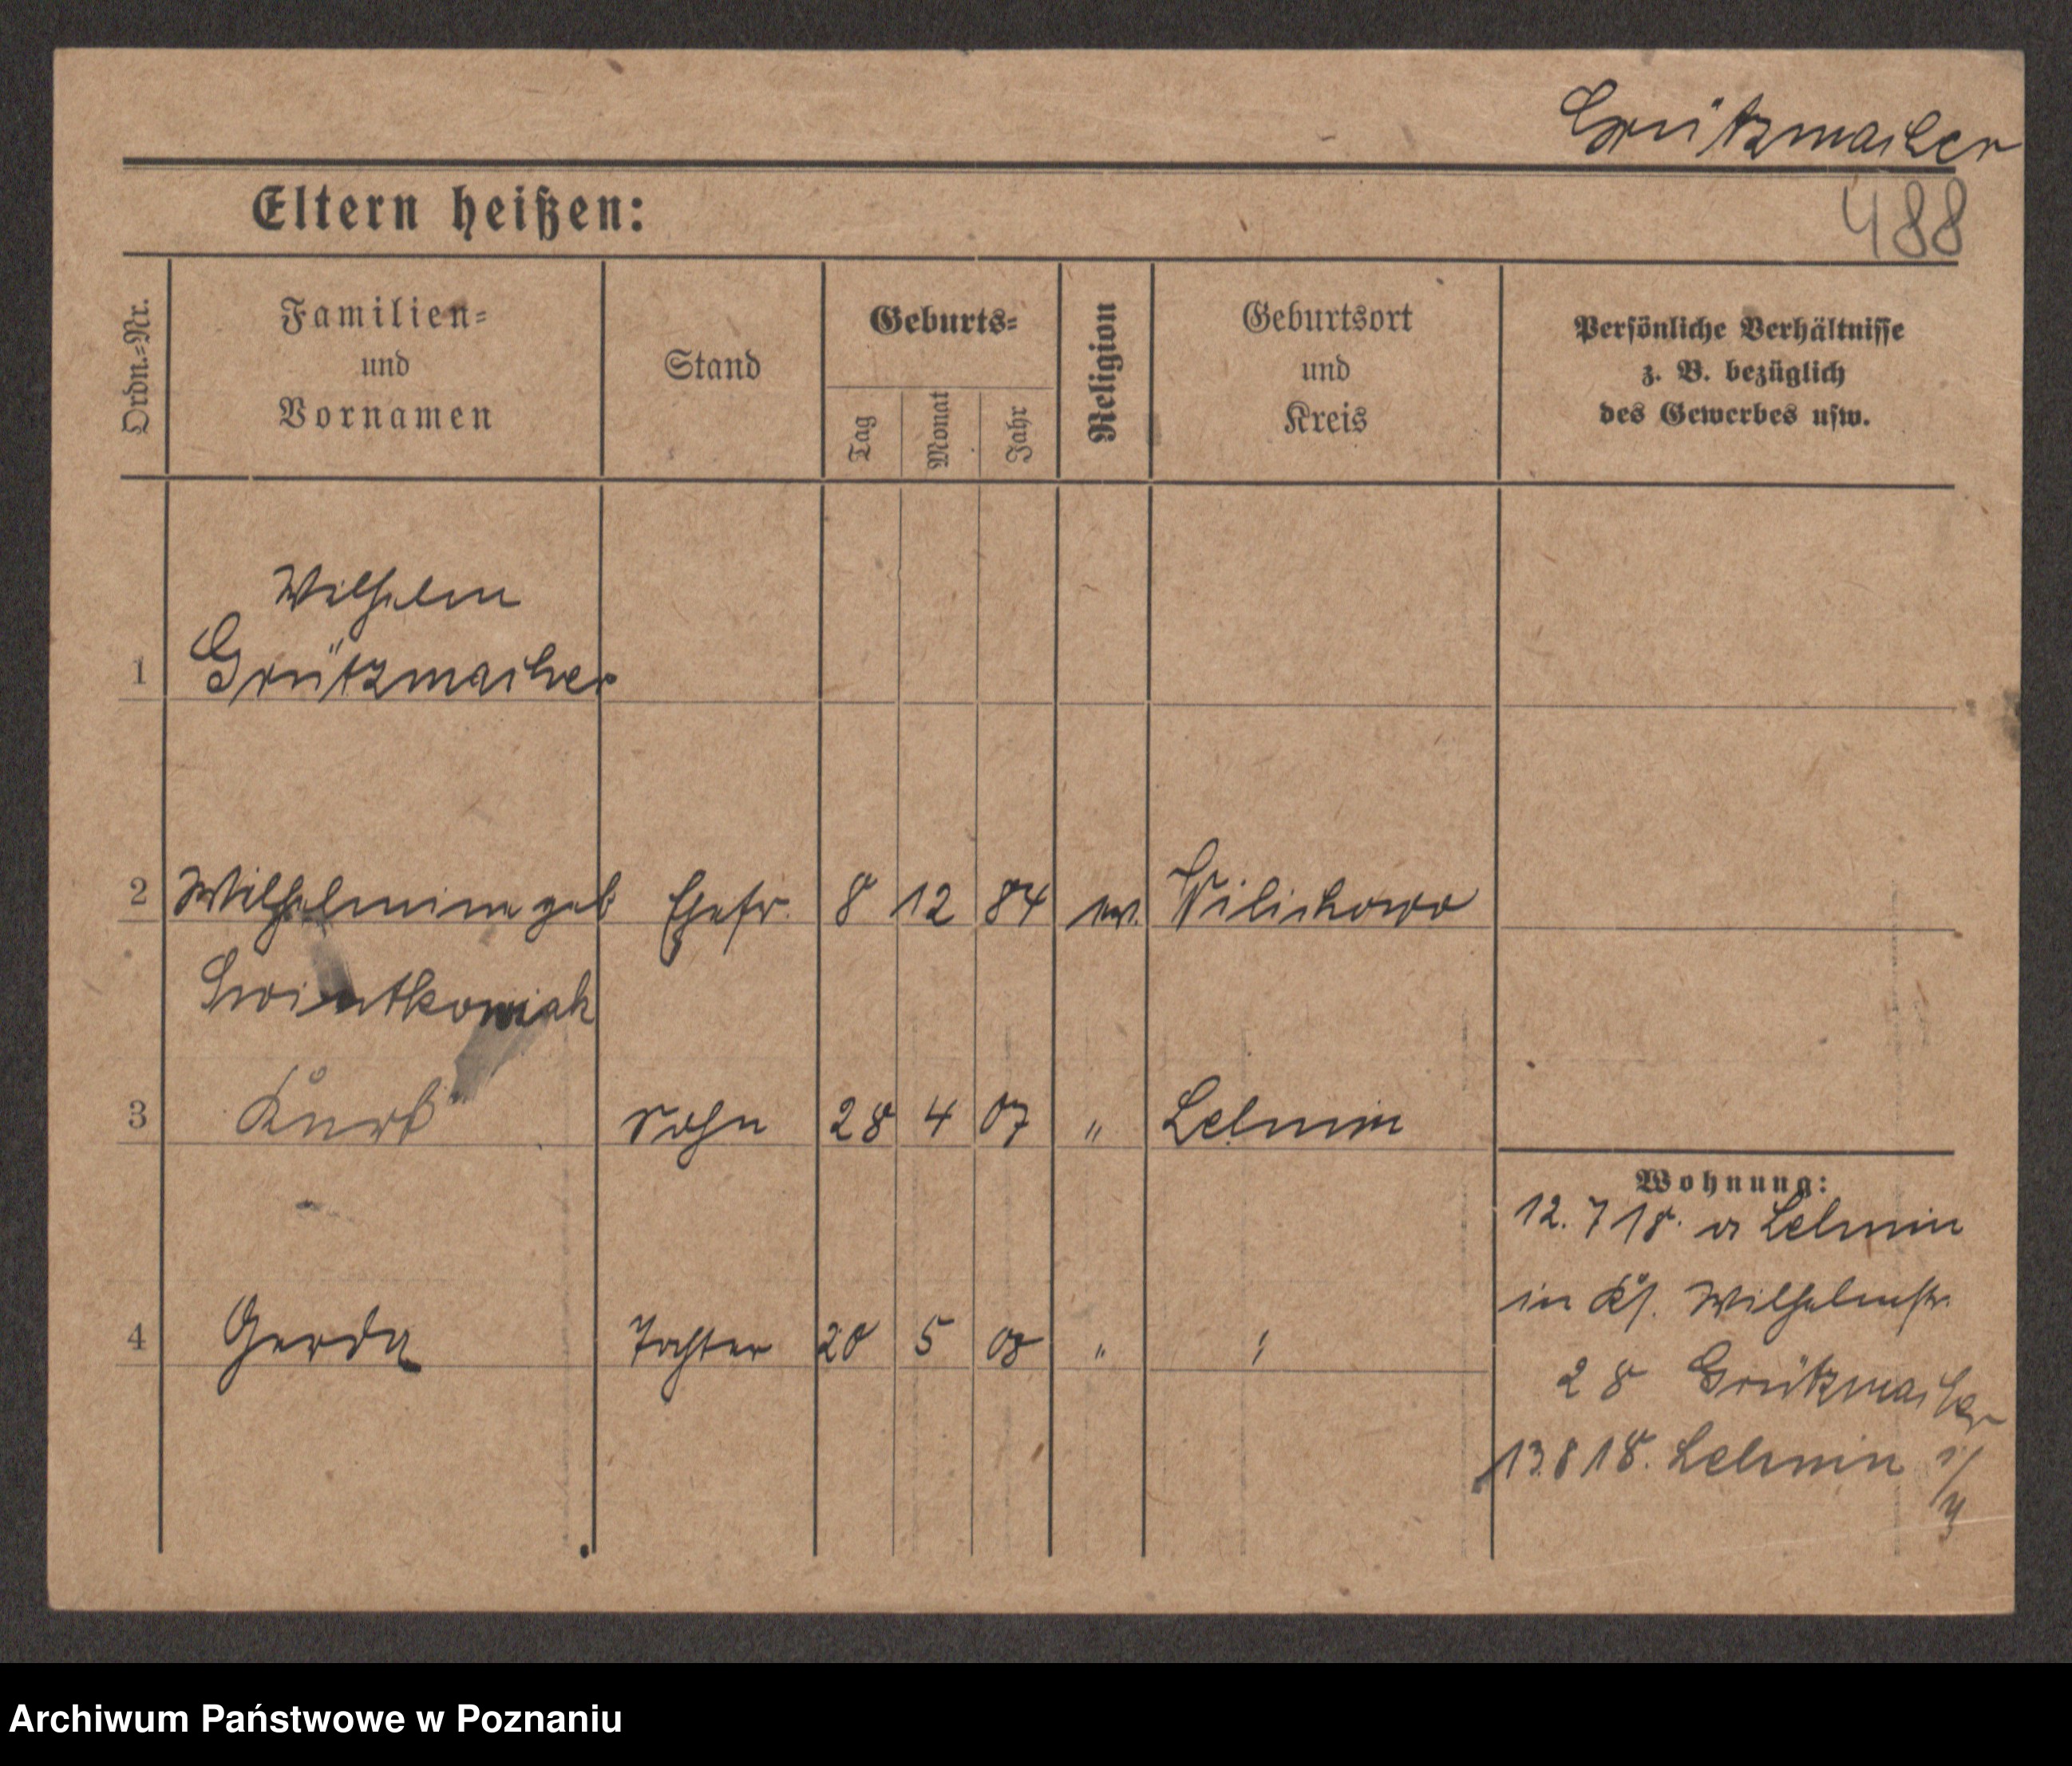 Grützmacher
488
Eltern heißen:
Ordn.=Nr.
Familien=
und
Vornamen
Stand
Geburts=
Tag
Monat
Jahr
Religion
Geburtsort
und
Kreis
Persönliche Verhältnisse
z. B. bezüglich
des Gewerbes usw.
Wilhelm
1 Grützmacher
2 Wilhelmine geb Ehefr. 8 12 84 ev. Wilichowo
Swintkowiak
3 Kurt Sohn 28 4 07 " Lelmin
Wohnung:
12. 7 18. Lelmin
in Wilhelmstr.
4 Gerda Tochter 20 5 08 " "
28 Grützmacher
13 8 18. Lelmin
Archiwum Państwowe w Poznaniu